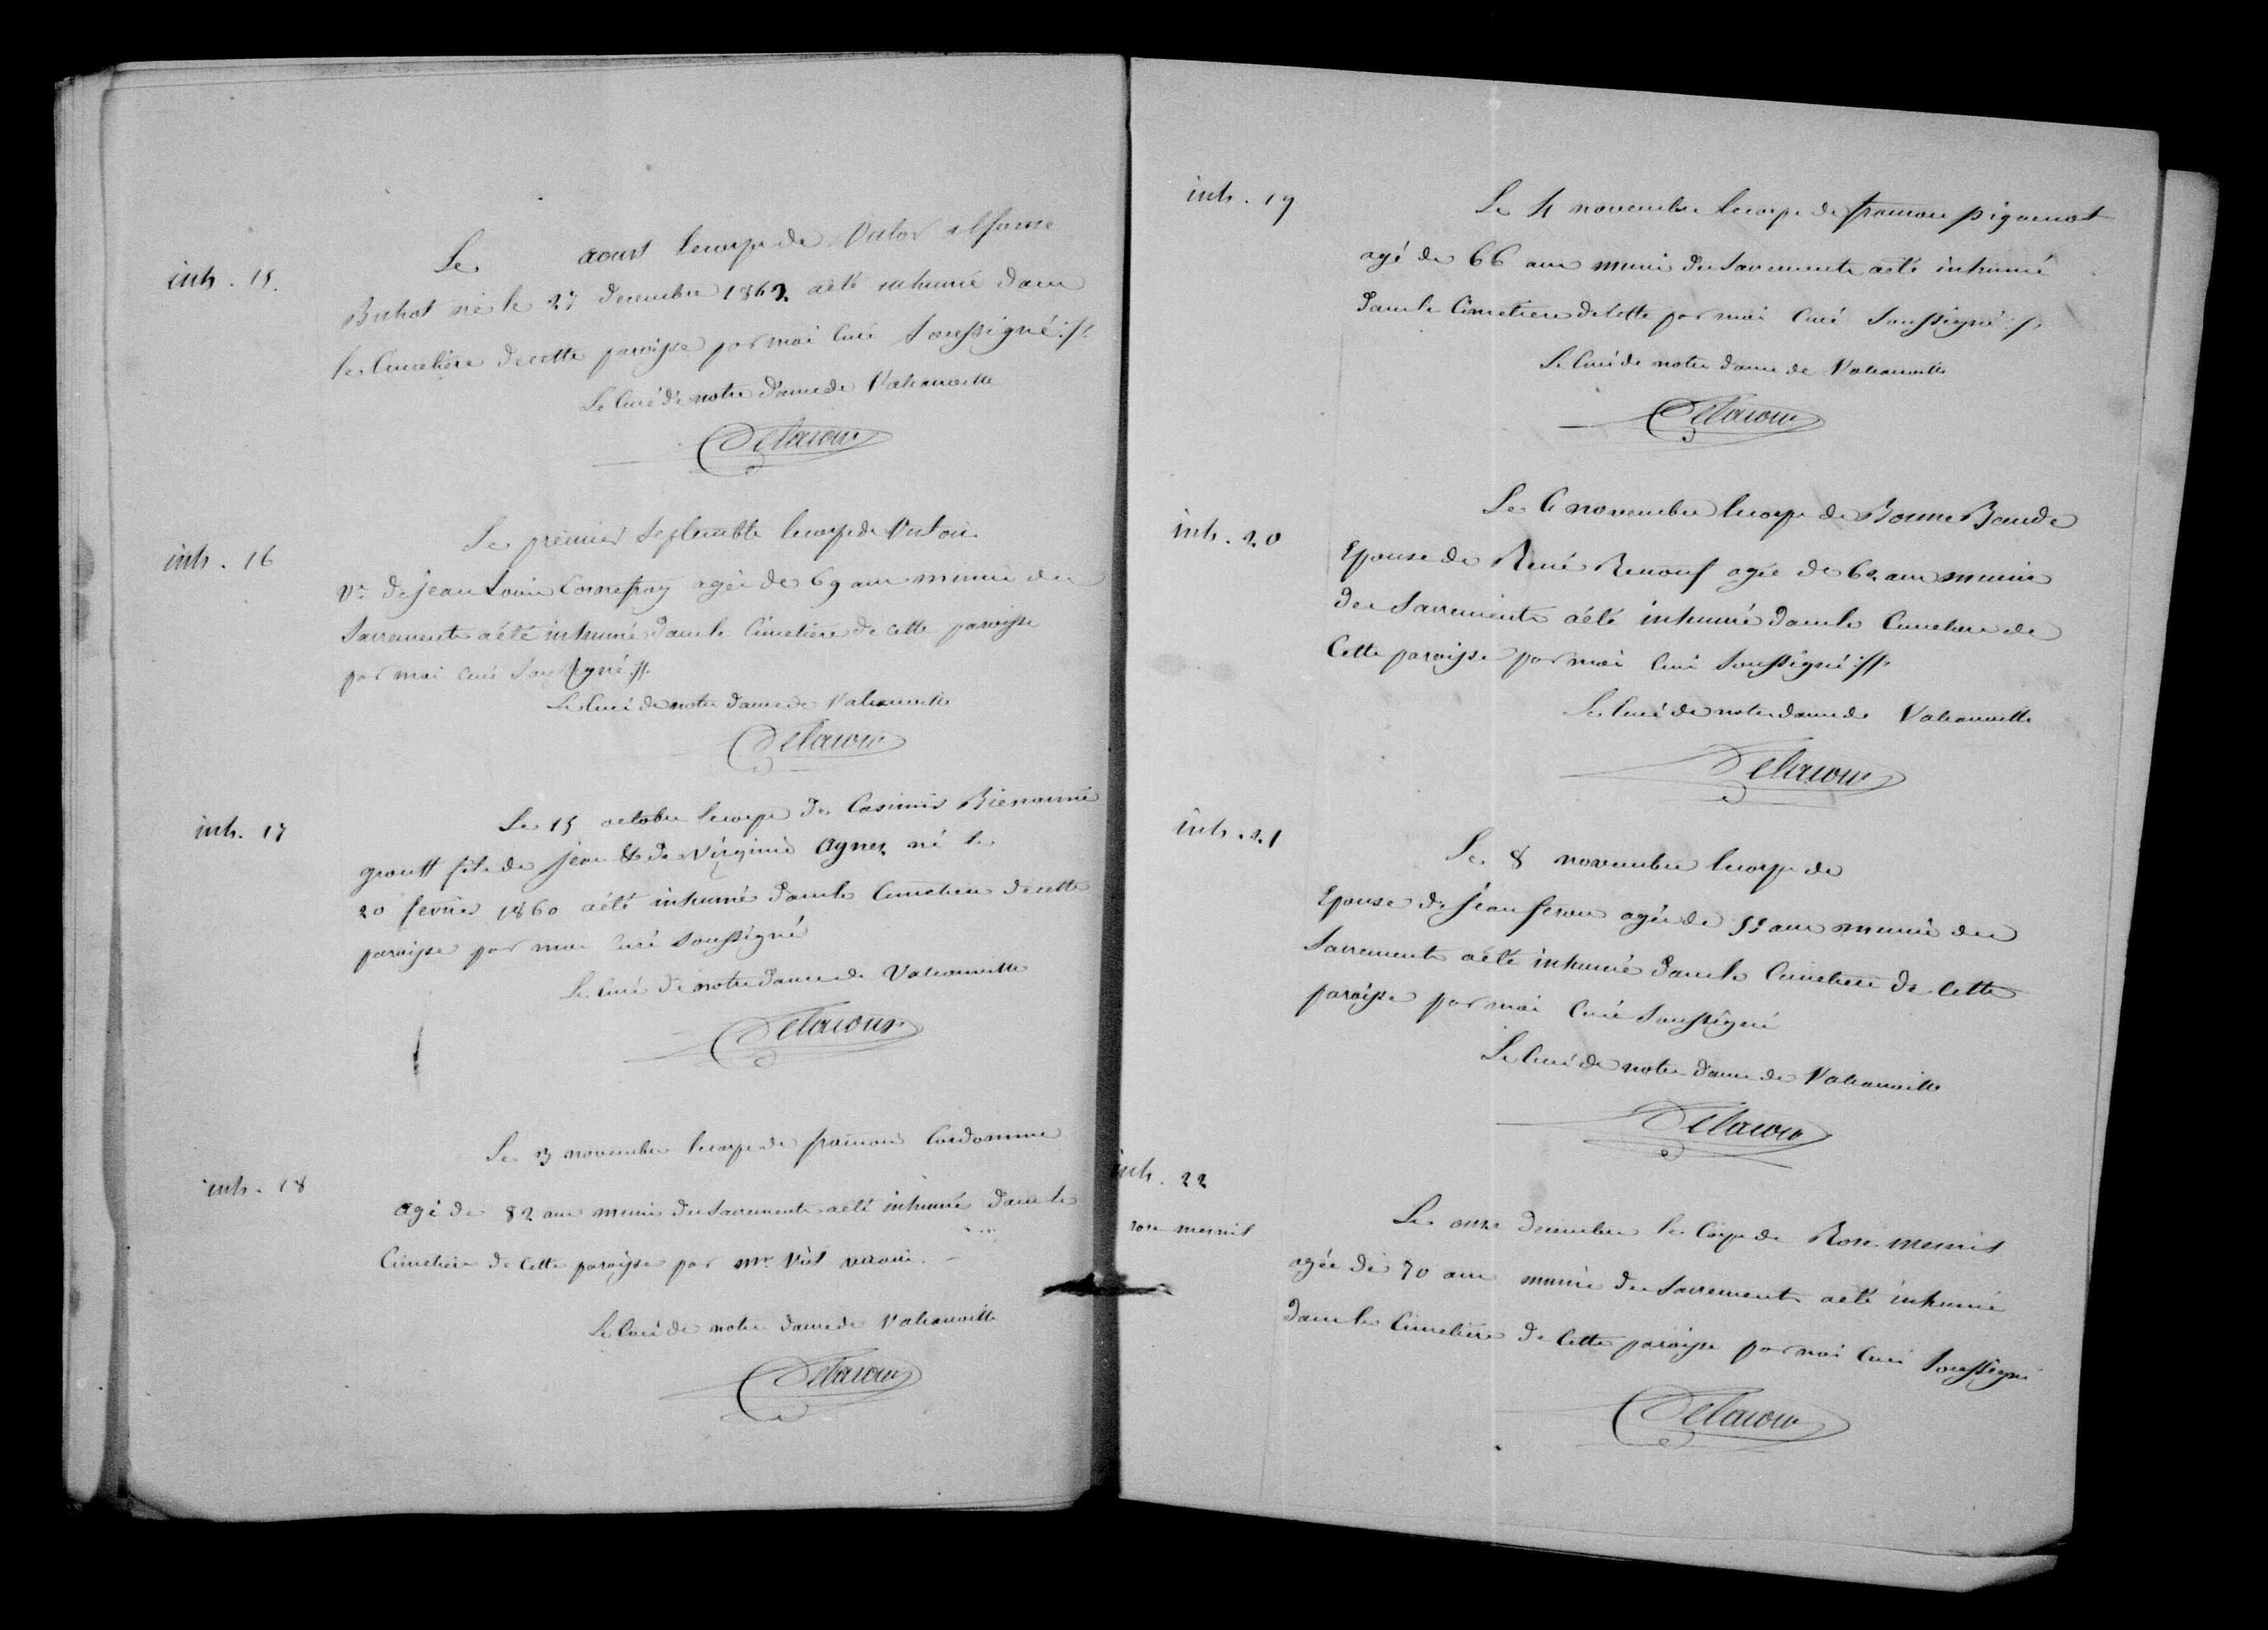 inh. 15.
Le aout le corps de Victor alfonse
Buhot né le 27 decembre 1862 a été inhumé dans
le Cimetière de cette paroisse par moi Curé Soussigné ./.
Le Curé de notre Dame de
Delacour
inh. 16
Le premier Septembre le corps de
Ve de jean Louis agée de 69 ans munie des
Sacrements a été inhumé dans le Cimetiere de cette paroisse
par moi curé Soussigné ./.
Le Curé de notre dame de
Delacour
inh. 17
Le 15 octobre le corps de Casimir Bienaimé
groult fils de jean & de Virginie agnez né le
20 fevrier 1860 a été inhumé dans le Cimetiere de cette
paroisse par moi curé soussigné
Le curé de notre dame de
Delacour
inh. 18
Le 3 novembre le corps de francois Cordomme
agé de 82 ans muni des Sacrements a été inhumé dans le
Cimetière de cette paroisse par mr
Le Curé de notre dame de
Delacour
inh. 19
Le 4 novembre le corps de francois pigournot
agé de 66 ans muni des Sacrements a été inhumé
dans le Cimetiere de cette par moi Curé Soussigné ./.
Le Curé de notre dame de
Delacour
inh. 20
Le 6 novembre le corps de Bonne Baude
Epouse de René Renouf agée de 62 ans munie
des Sacrements a été inhumé dans le Cimetiere de
Cette paroisse par moi Curé Soussigné ./.
Le Curé de notre dame de
Delacour
inh. 21
Le 8 novembre le corps de
Epouse de jean feron agée de 55 ans munie des
Sacrements a été inhumé dans le Cimetiere de Cette
paroisse par moi Curé Soussigné
Le Curé de notre Dame de
Delacour
inh. 22
rose mesnil
Le onze decembre le Corps de Rose mesnil
agée de 70 ans munie des Sacrements a été inhumé
dans le Cimetiere de Cette paroisse par moi Curé Soussigné
Delacour